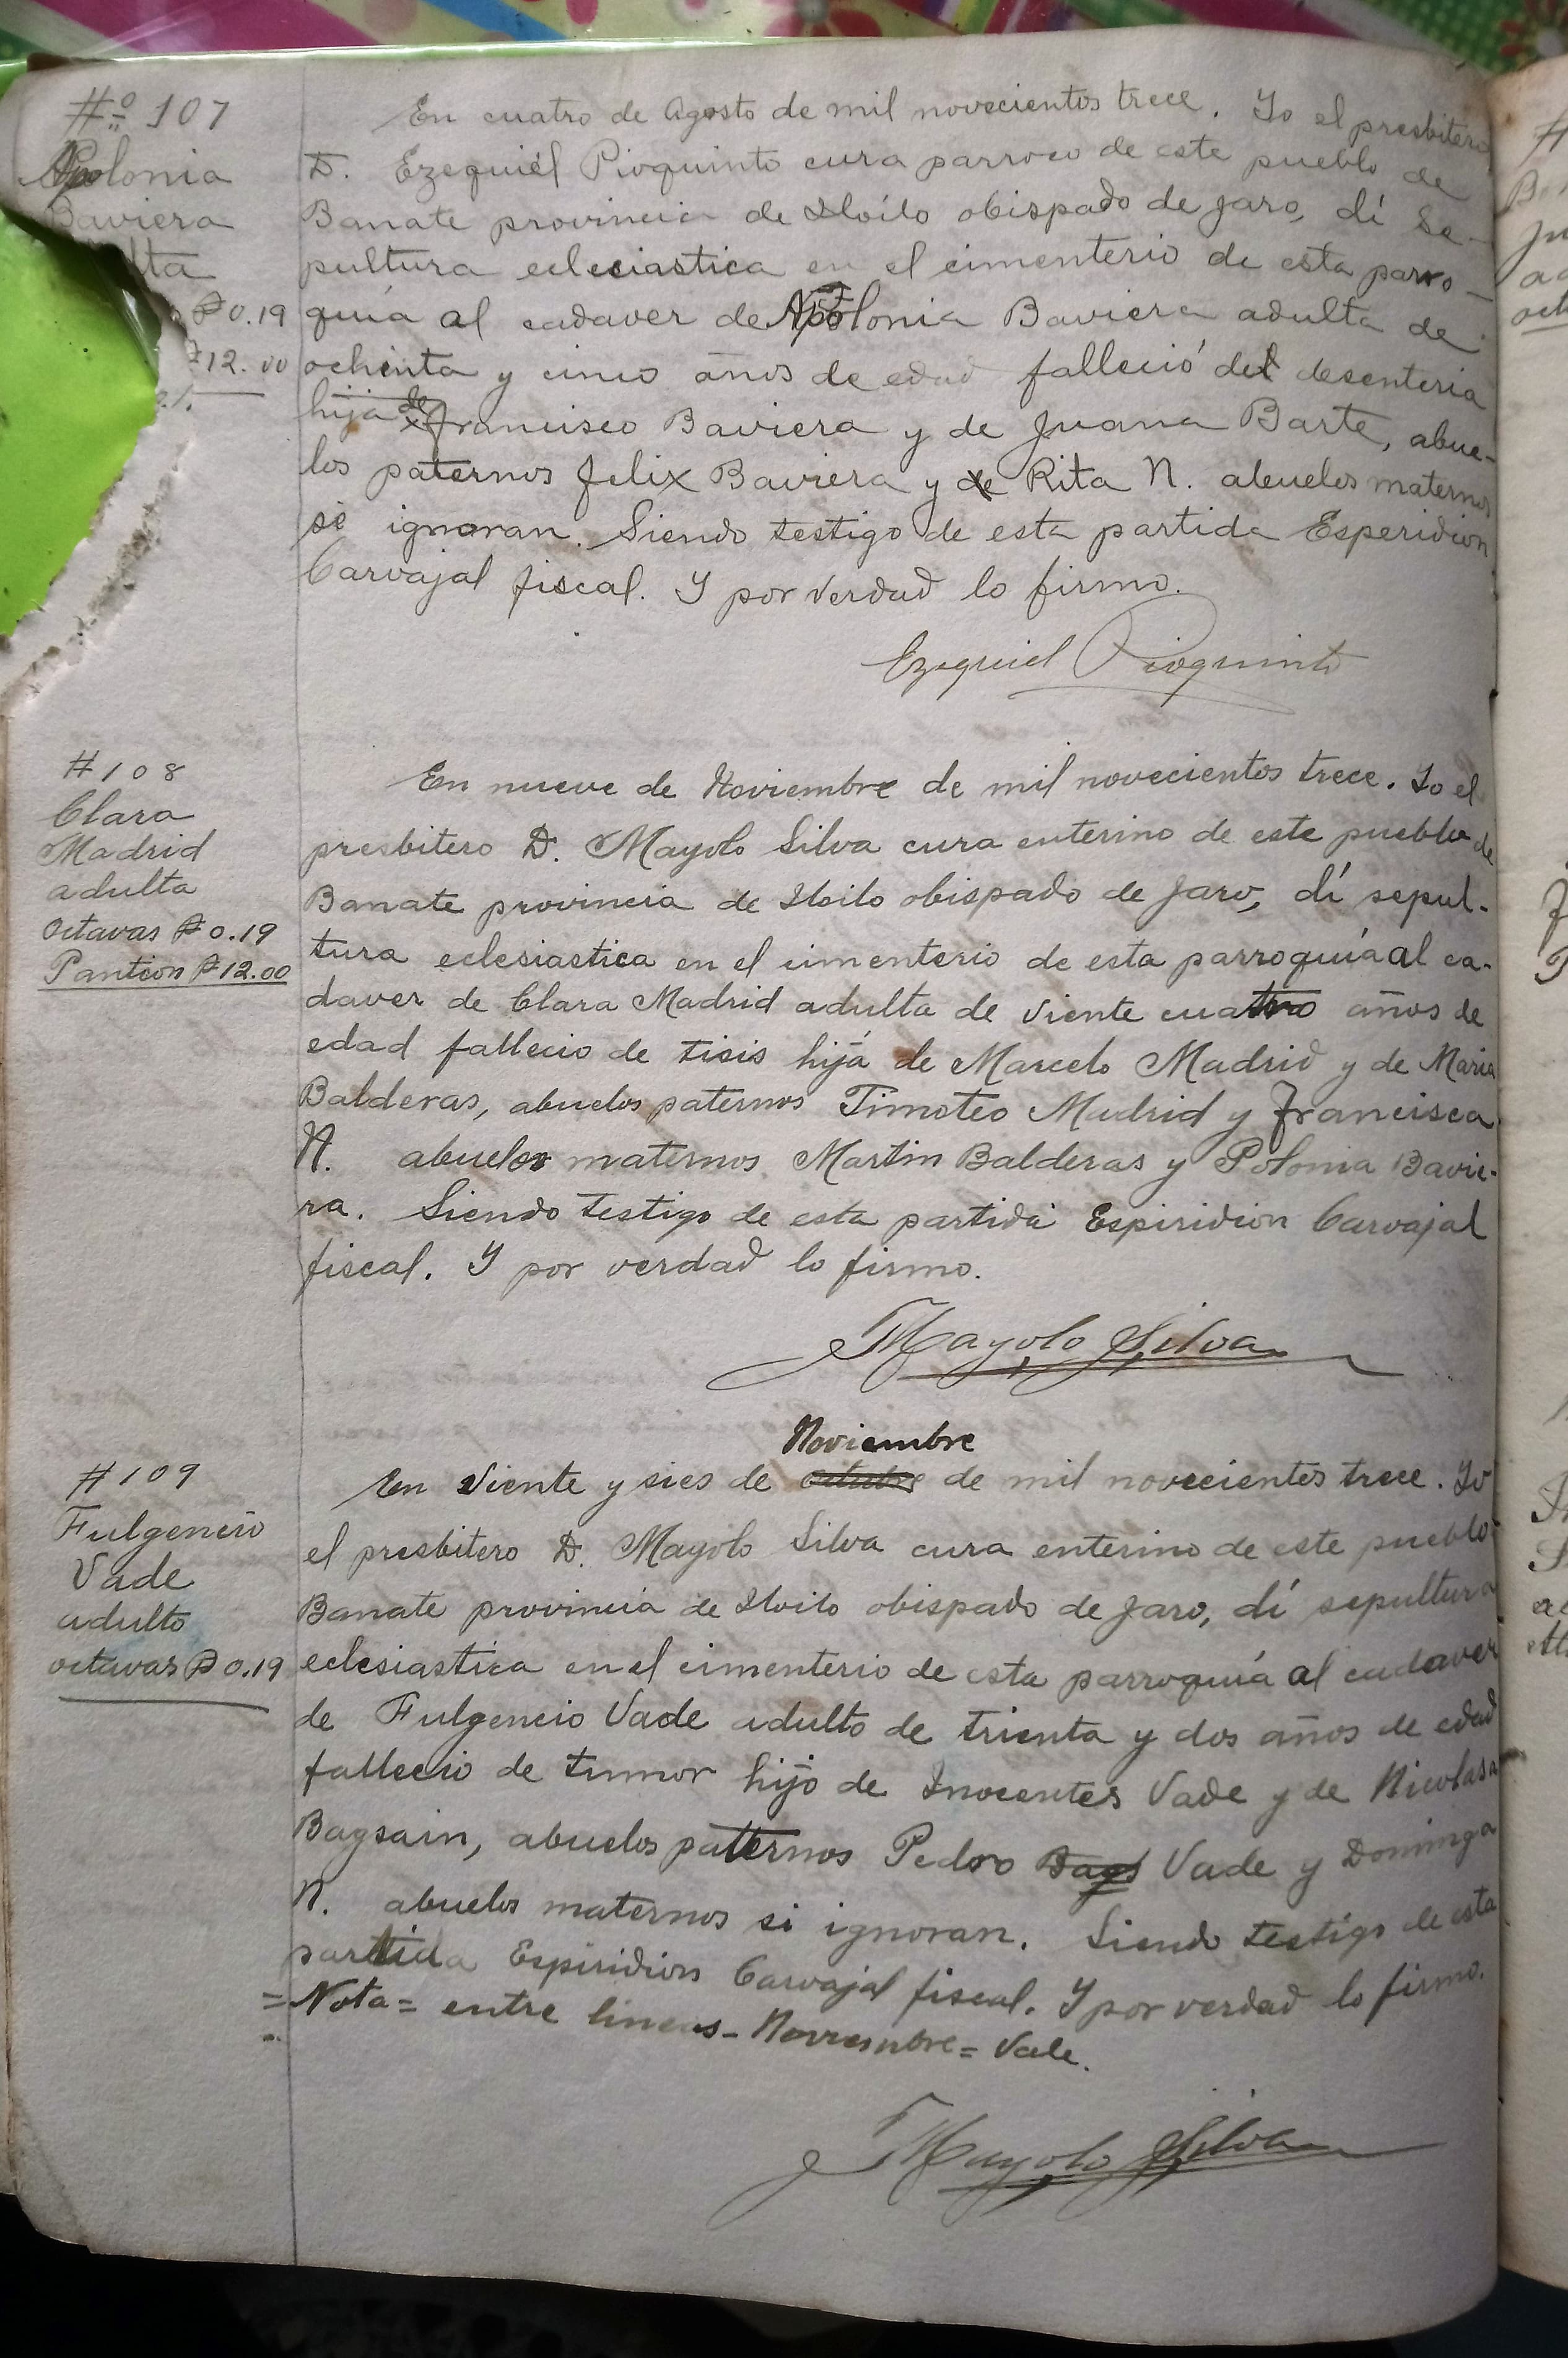 #º 107
Apolonia
Baviera
lta
₱0.19
₱12.00
En cuatro de Agosto de mil novecientos trece. Yo el presbitero
D. Ezequiel Pioquinto cura parroco de este pueblo de
Banate provincia de Iloilo obispado de Jaro, dí se-
pultura eclesiastica en el cimenterio de esta parro-
quia al cadaver de Apolonia Baviera adulta de
ochinta y cinco años de edad falleció del desenteria
hija de Francisco Baviera y de Juana Barte, abue-
los paternos Felix Baviera y de Rita N. abuelos maternos
se ignoran. Siendo testigo de esta partida Esperidion
Carvajal fiscal. Y por verdad lo firmo.
Ezequiel Pioquinto
#108
Clara
Madrid
adulta
Octavas ₱0.19
Panteon ₱12.00
En nueve de Noviembre de mil novecientos trece. Yo el
presbitero D. Mayolo Silva cura enterino de este pueblo de
Banate provincia de Iloilo obispado de Jaro, dí sepul-
tura eclesiastica en el cimenterio de esta parroquia al ca-
daver de Clara Madrid adulta de viente cuatro años de
edad fallecio de tisis hija de Marcelo Madrid y de Maria
Balderas, abuelos paternos Timoteo Madrid y Francisca
N. abuelos maternos Martin Balderas y Polonia Bavie-
ra. Siendo testigo de esta partida Espiridion Carvajal
fiscal. Y por verdad lo firmo.
Mayolo Silva
#109
Fulgencio
Vade
adulto
octavas ₱0.19
Noviembre
En Viente y sies de octubre de mil novecientos trece. Yo
el presbitero D. Mayolo Silva cura enterino de este pueblo
Banate provincia de Iloilo obispado de Jaro, dí sepultura
eclesiastica en el cimenterio de esta parroquia al cadaver
de Fulgencio Vade adulto de trienta y dos años de edad
fallecio de tumor hijo de Inocentes Vade y de Nicolasa
Bagsain, abuelos patternos Pedro Bags Vade y Dominga
N. abuelos maternos si ignoran. Siendo testigo de esta
partida Espiridion Carvajal fiscal. Y por verdad lo firmo.
=Nota= entre lineas- Noviembre= Vale.
Mayolo Silva